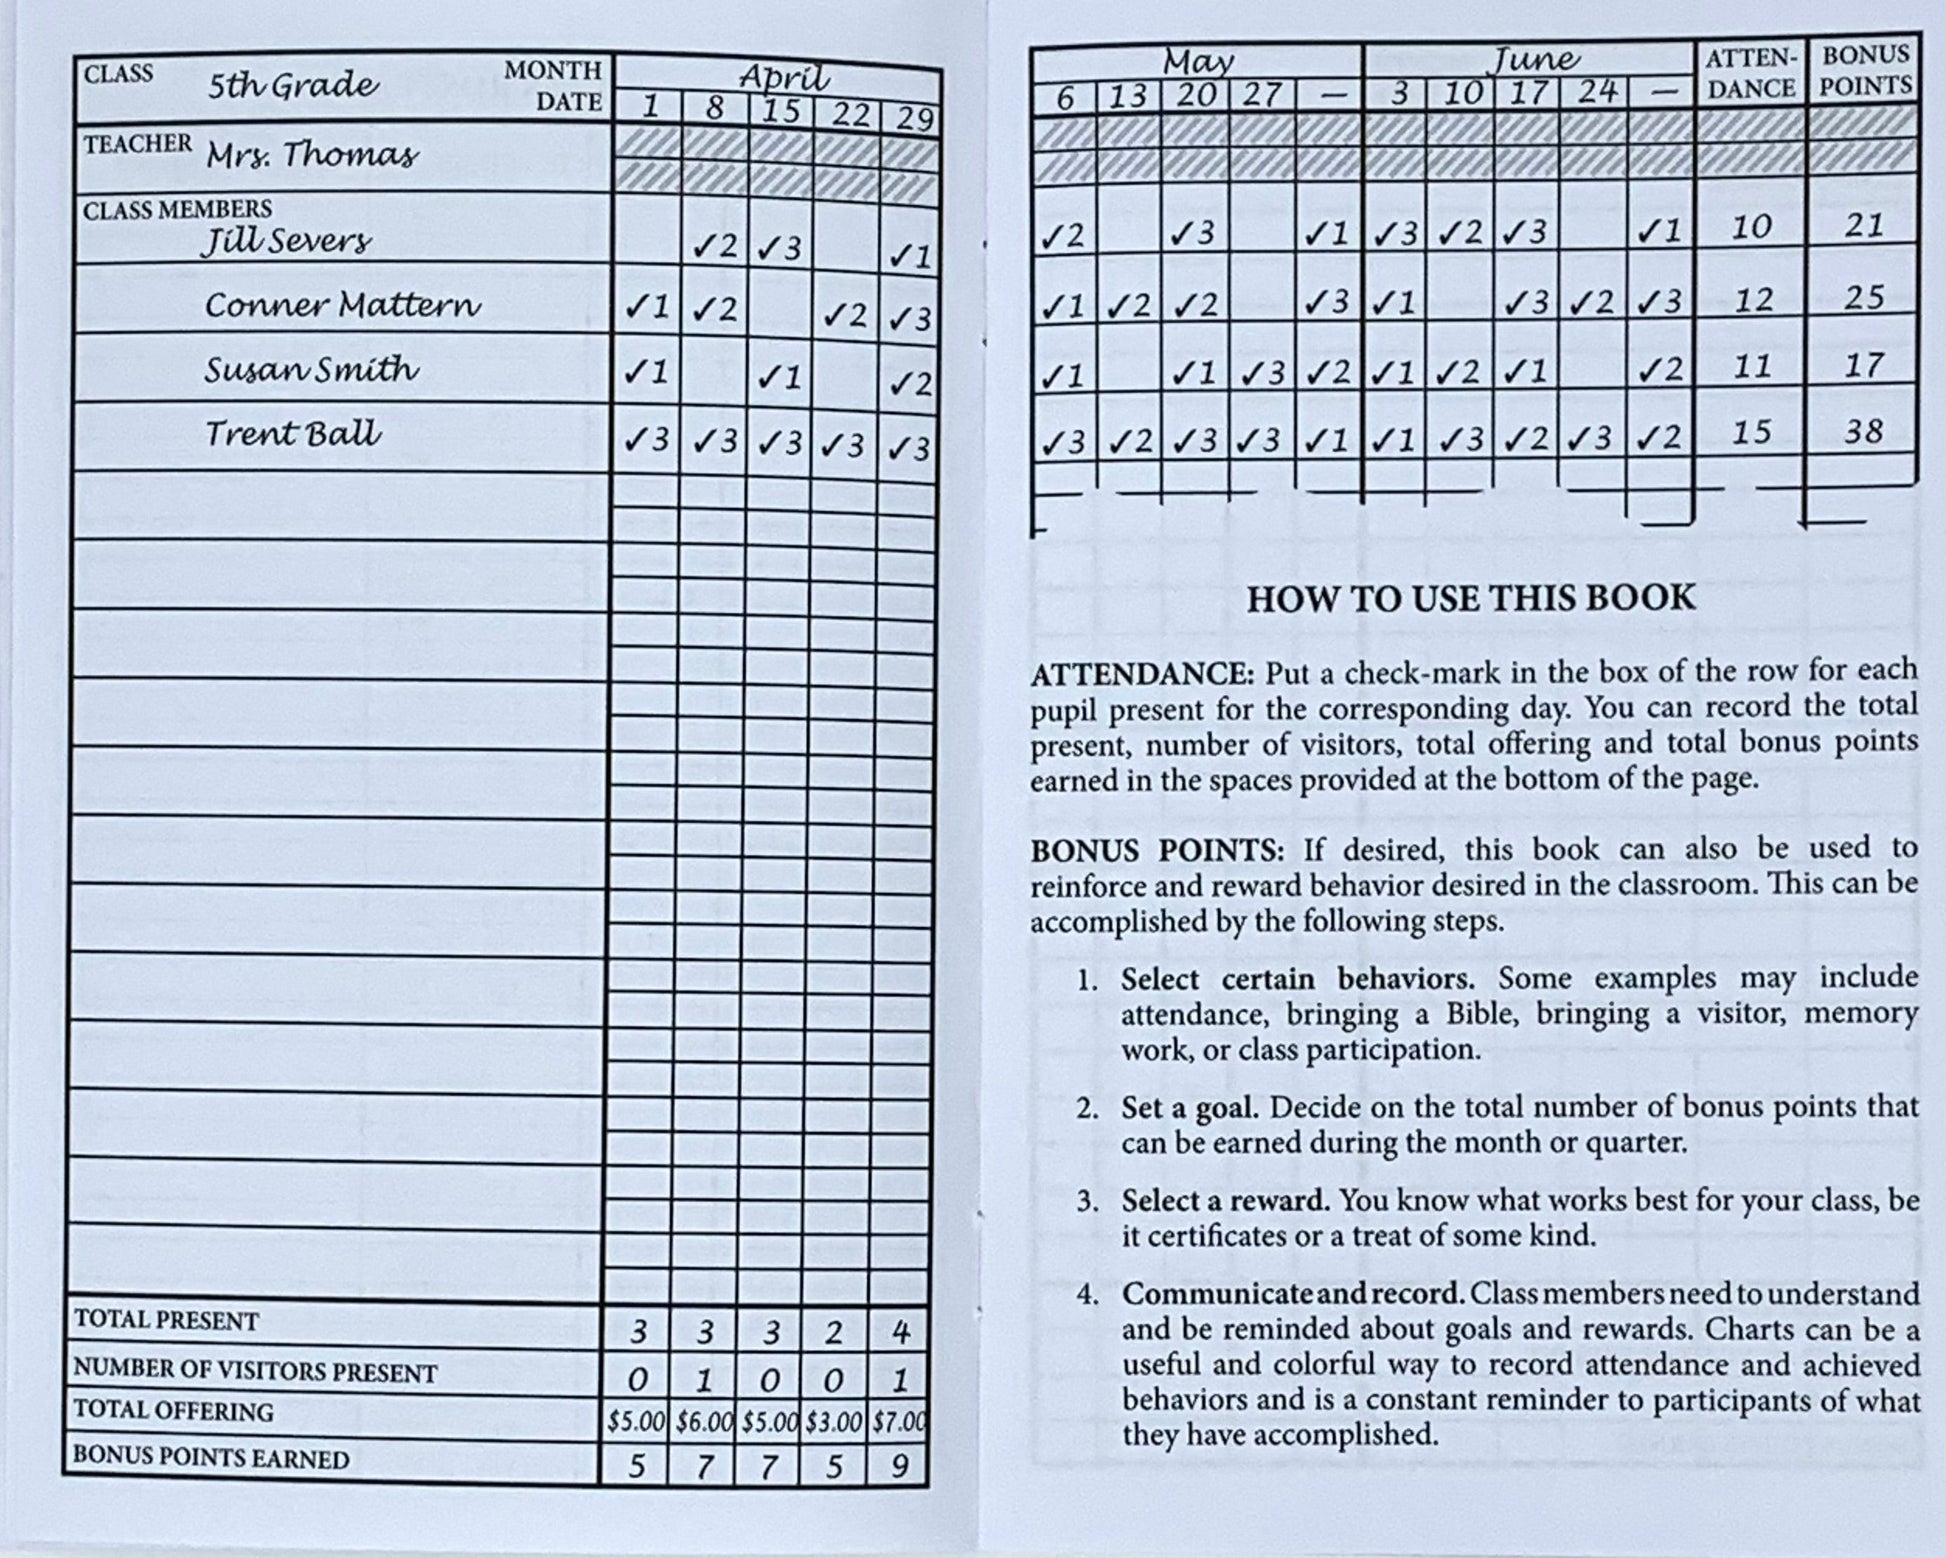 CLASS 5th Grade MONTH April
DATE 1 8 15 22 29
TEACHER Mrs. Thomas
CLASS MEMBERS
Jill Severs ✓2 ✓3 ✓1
Conner Mattern ✓1 ✓2 ✓2 ✓3
Susan Smith ✓1 ✓1 ✓2
Trent Ball ✓3 ✓3 ✓3 ✓3 ✓3
TOTAL PRESENT 3 3 3 2 4
NUMBER OF VISITORS PRESENT 0 1 0 0 1
TOTAL OFFERING $5.00 $6.00 $5.00 $3.00 $7.00
BONUS POINTS EARNED 5 7 7 5 9
May June ATTEN- BONUS
6 13 20 27 — 3 10 17 24 — DANCE POINTS
✓2 ✓3 ✓1 ✓3 ✓2 ✓3 ✓1 10 21
✓1 ✓2 ✓2 ✓3 ✓1 ✓3 ✓2 ✓3 12 25
✓1 ✓1 ✓3 ✓2 ✓1 ✓2 ✓1 ✓2 11 17
✓3 ✓2 ✓3 ✓3 ✓1 ✓1 ✓3 ✓2 ✓3 ✓2 15 38
HOW TO USE THIS BOOK
ATTENDANCE: Put a check-mark in the box of the row for each
pupil present for the corresponding day. You can record the total
present, number of visitors, total offering and total bonus points
earned in the spaces provided at the bottom of the page.
BONUS POINTS: If desired, this book can also be used to
reinforce and reward behavior desired in the classroom. This can be
accomplished by the following steps.
1. Select certain behaviors. Some examples may include
attendance, bringing a Bible, bringing a visitor, memory
work, or class participation.
2. Set a goal. Decide on the total number of bonus points that
can be earned during the month or quarter.
3. Select a reward. You know what works best for your class, be
it certificates or a treat of some kind.
4. Communicate and record. Class members need to understand
and be reminded about goals and rewards. Charts can be a
useful and colorful way to record attendance and achieved
behaviors and is a constant reminder to participants of what
they have accomplished.